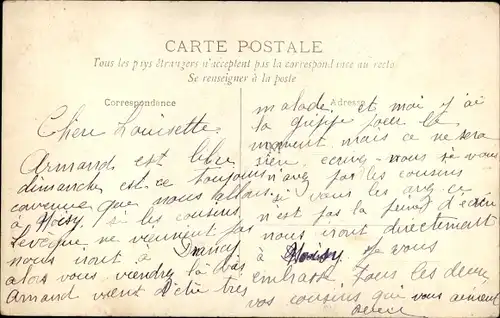 CARTE POSTALE
Tous les pays étrangers n'acceptent pas la correspondance au recto
Se renseigner à la poste
Correspondance
Adresse
Chere Louisette
Armand est libre
dimanche est ce toujours
convenue que nous allons
à Noisy si les cousins
Leveque ne viennent pas
nous iront à Drancy
alors vous viendrez là bas
Armand vient d'être très
malade et moi j'ai
la grippe pour le
moment mais ce ne sera
rien ecrivez-nous si vous
n'avez pas les cousins
si vous les avez ce
n'est pas la peine d'ecrire
nous iront directement
à Noisy Je vous
embrasse tous les deux
vos cousins qui vous aiment